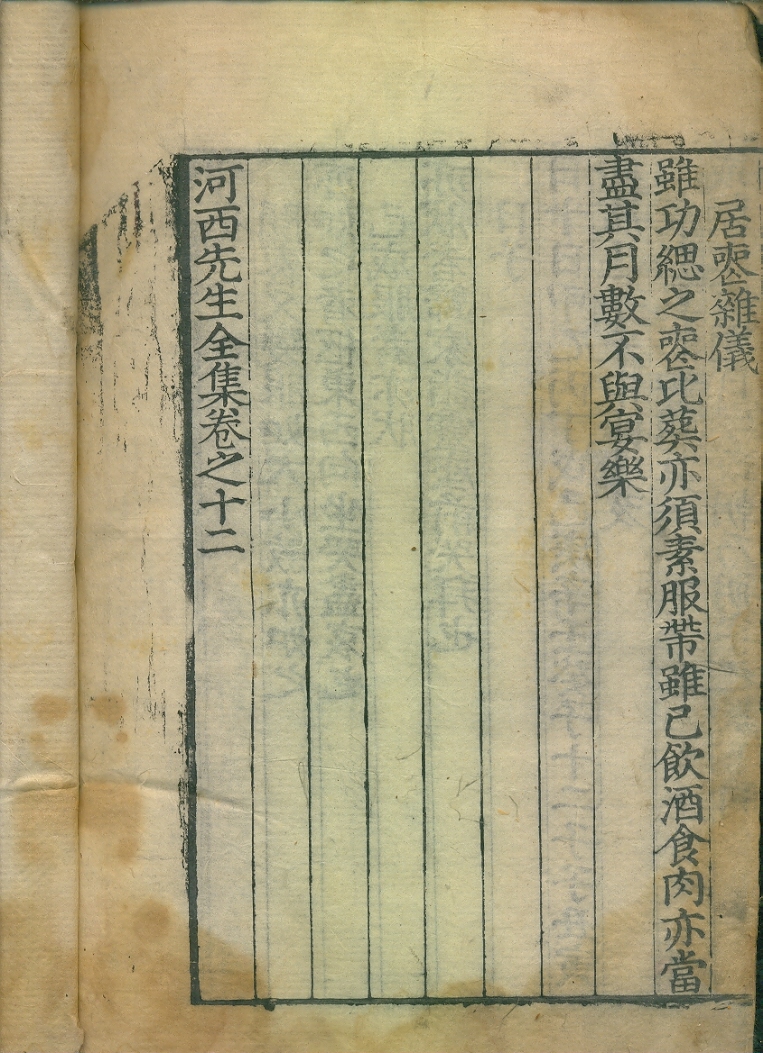 居喪雜儀
雖功緦之喪比葬亦須素服帶雖已飮酒食肉亦當
盡其月數不與宴樂
河西先生全集卷之十二